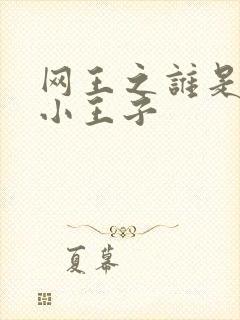 网王之誰是
小王子
夏幕